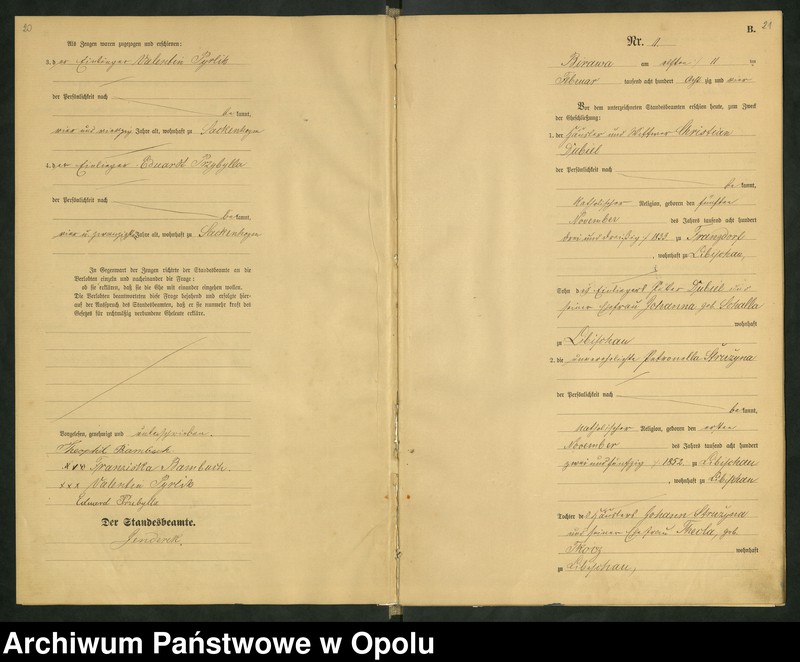 20
Als Zeugen waren zugezogen und erschienen:
3. der Einlieger Valentin Pyrlik
der Persönlichkeit nach
bekannt,
vier und vierzig Jahre alt, wohnhaft zu Sackenhoym
4. der Einlieger Eduardt Przybylla
der Persönlichkeit nach
bekannt,
vier u zwanzig Jahre alt, wohnhaft zu Sackenhoym
In Gegenwart der Zeugen richtete der Standesbeamte an die
Verlobten einzeln und nacheinander die Frage:
ob sie erklären, daß sie die Ehe mit einander eingehen wollen.
Die Verlobten beantworteten diese Frage bejahend und erfolgte hier-
auf der Ausspruch des Standesbeamten, daß er sie nunmehr kraft des
Gesetzes für rechtmäßig verbundene Eheleute erkläre.
Vorgelesen, genehmigt und unterschrieben.
Theophil Bambach
xxx Franziska Bambach.
xxx Valentin Pyrlik
Eduard
Der Standesbeamte.
Jendrek.
B. 21
Nr. 8.
Birawa am elften / 11 ten
Februar tausend acht hundert achtzig und vier
Vor dem unterzeichneten Standesbeamten erschien heute, zum Zweck
der Eheschließung:
1. der Häusler und Wittwer Christian
Dubiel
der Persönlichkeit nach
bekannt,
katholischer Religion, geboren den fünften
November des Jahres tausend acht hundert
drei und dreißig / 1833 zu Franzdorf
, wohnhaft zu Libischau,
Sohn des Einliegers Peter Dubiel und
seiner Ehefrau Johanna geb Schalla
wohnhaft
zu Libischau
2. die unverehelichte Petronella Struzyna
der Persönlichkeit nach
bekannt,
katholischer Religion, geboren den ersten
November des Jahres tausend acht hundert
zwei und fünfzig / 1852 zu Libischau
, wohnhaft zu Libischau
Tochter des Häuslers Johann Struzyna
und seiner Ehefrau Thecla, geb.
wohnhaft
zu Libischau,
Archiwum Państwowe w Opolu